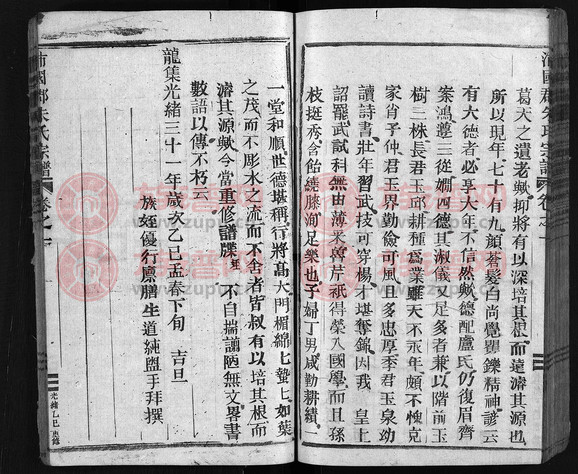 葛天之遺老歟抑將有以深培其根而遠濬其源也
所以現年七十有九顏蒼髮白尚覺矍鑠精神諺云
有大德者必享大年不信然歟德配盧氏仍復眉齊
案鴻遵三從嫻四德其淑儀又足多者兼以階前玉
樹三株長君玉邱耕種為業雖天不永年頗不愧克
家肖子仲君玉界勤儉可風且多忠厚季君玉泉幼
讀詩書壯年習武技可穿楊才堪奪錦因我 皇上
詔罷武試科無由薄采芹祇得榮入國學而且孫
枝挺秀含飴繞膝洵足樂也子婦丁男咸勤耕績
一堂和順世德堪稱行將高大門楣綿七蟄七如葉
之茂而不彫水之流而不舍者皆叔有以培其根而
濬其源歟今當重修譜牒 不自揣譾陋無文畧書
數語以傳不朽云
龍集光緒三十一年歲次乙巳孟春下旬 吉旦
族姪優行廩膳生道純盥手拜撰
沛國郡朱氏宗譜 卷之一
光緒乙巳